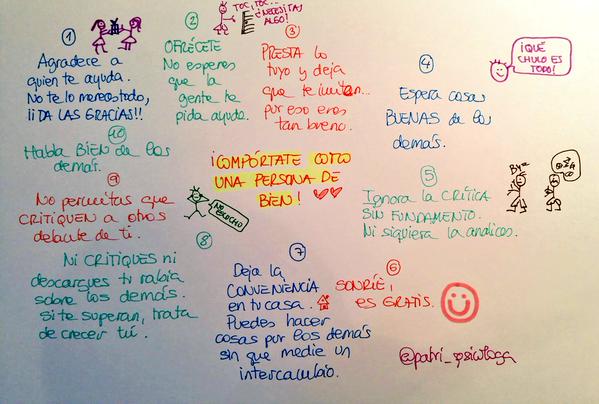 ①
Agradece a
quien te ayuda.
No te lo mereces todo,
¡¡DA LAS GRACIAS!!
②
OFRÉCETE
No esperes
que la
gente te
pida ayuda.
TOC, TOC...
¿NECESITAS
ALGO!
③
PRESTA lo
tuyo y deja
que te imiten...
por eso eres
tan bueno.
④
Espera cosas
BUENAS de los
demás.
¡QUÉ
CHULO ES
TODO!
¡COMPÓRTATE COMO
UNA PERSONA DE
BIEN!
⑤
Ignora la CRÍTICA
SIN FUNDAMENTO.
Ni siquiera la analices.
⑥
SONRÍE,
ES GRATIS.
⑦
Deja la
CONVENIENCIA
en tu casa.
Puedes hacer
cosas por los demás
sin que medie un
intercambio.
⑧
Ni CRITIQUES ni
descargues tu rabia
sobre los demás.
Si te superan, trata
de crecer tú.
⑨
No permitas que
CRITIQUEN a otros
delante de ti.
⑩
Habla BIEN de los
demás.
@patri_psicologa